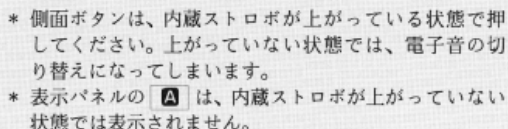 * 側面ボタンは、内蔵ストロボが上がっている状態で押
してください。上がっていない状態では、電子音の切
り替えになってしまいます。
* 表示パネルの A は、内蔵ストロボが上がっていない
状態では表示されません。